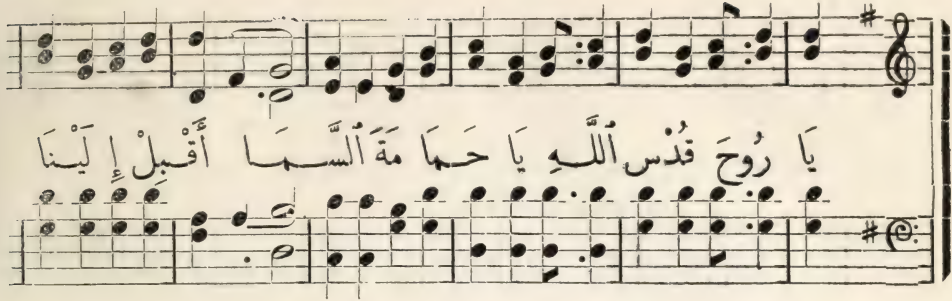 يَا رُوحَ قُدْسِ ٱللَّـهِ يَا حَـمَا مَةَ ٱلسَّـمَـا أَقْـبِلْ إِ لَيْـنَا